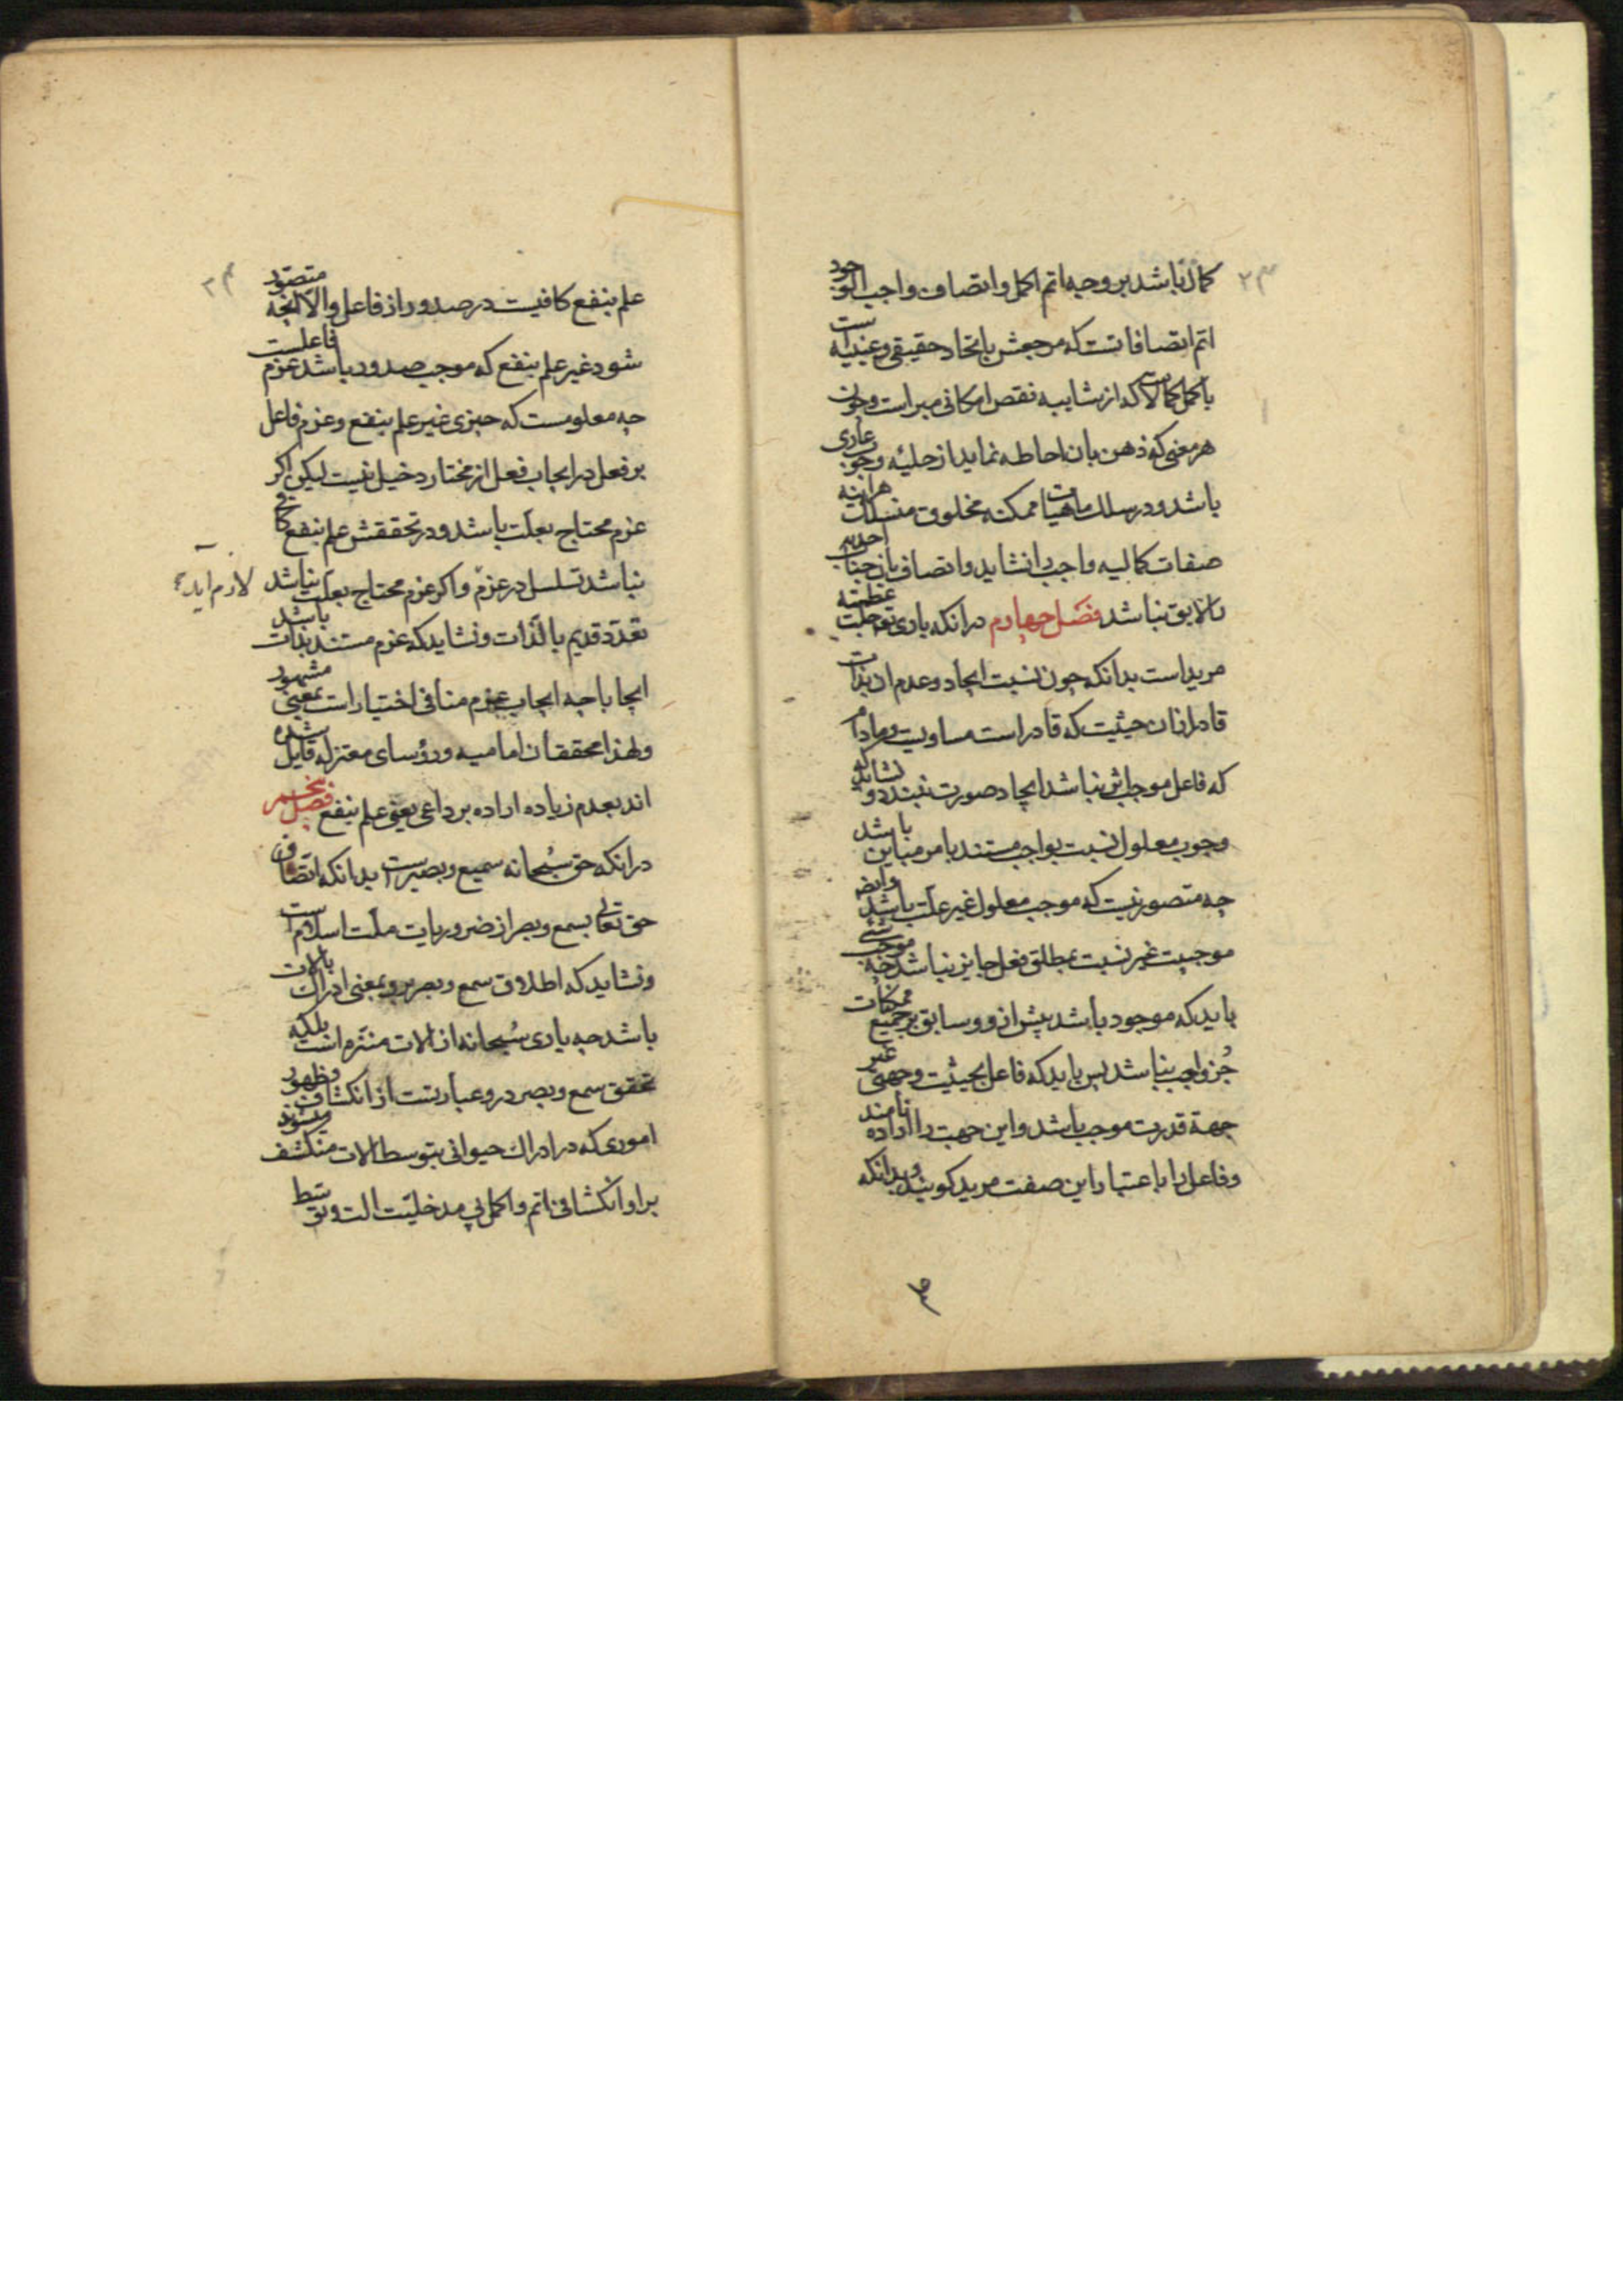 ۲۳
کمال باشد بر وجه اتم اکمل و اتصاف واجب الوجود
اتم اتصافاتست که مرجعش باتحاد حقیقی و عینیه است
باکمل کمالاست که از شایبه نقص امکانی مبراست و چون
هر معنی که ذهن بان احاطه نماید از حلیه وجوب عاری
باشد و در سلک ماهیات ممکنه مخلوق منسلک هراینه
صفات کمالیه واجب را نشاید و اتصاف بان جناب احدیت
را لایق نباشد فصل چهارم در انکه باری تعه جلت عظمته
مرید است بدانکه چون نسبت ایجاد و عدم ان بذات
قادر ازان حیثیت که قادر است مساویست و مادام
که فاعل موجب اثر نباشد ایجاد صورت نبندد و نشاید که
وجوب معلول نسبت بواجب مستند بامر مباین باشد
چه متصور نیست که موجب معلول غیر علت باشد وایضه
موجبیت غیر نسبت بمطلق فعل جایز نباشد چه موجب شی
باید که موجود باشد پیش از و و سابق بر جمیع ممکنات
جز واجب نباشد پس باید که فاعل بحیثیت وجهتی غیر
جهة قدرت موجب باشد و این جهت را اراده نامند
و فاعل را باعتبار این صفت مرید کویند و بدانکه
۲۴
علم بنفع کافیست در صدور از فاعل والا انچه متصور
شود غیر علم بنفع که موجب صدور باشد عزم فاعلست
چه معلومست که چیزی غیر علم بنفع و عزم فاعل
بر فعل در ایجاب فعل از مختار دخیل نیست لیکن اکر
عزم محتاج بعلت باشد و در تحققش علم بنفع کافی
نباشد تسلسل در عزم و اکر عزم محتاج بعلت نباشد
لازم اید
تعدد قدیم بالذات و نشاید که عزم مستند بذات باشد
ایجابا چه ایجاب عزم منافی اختیار است بمعنی مشهور
ولهذا محققان امامیه و رؤسای معتزله قایل شده
اند بعدم زیاده اراده بر داعی یعنی علم بنفع فصل پنجم
در انکه حق سبحانه سمیع و بصیرست بدانکه اتصاف
حق تعالی بسمع و بصر از ضروریات ملت اسلام است
و نشاید که اطلاق سمع و بصر برو بمعنی ادراک بالات
باشد چه باری سبحانه از الات منزه است بلکه
تحقق سمع و بصر درو عبارتست از انکشاف و ظهور
اموری که در ادراک حیوانی بتوسط الات منکشف میشوند
بر او انکشافی اتم و اکمل بی مدخلیت الت و توسط